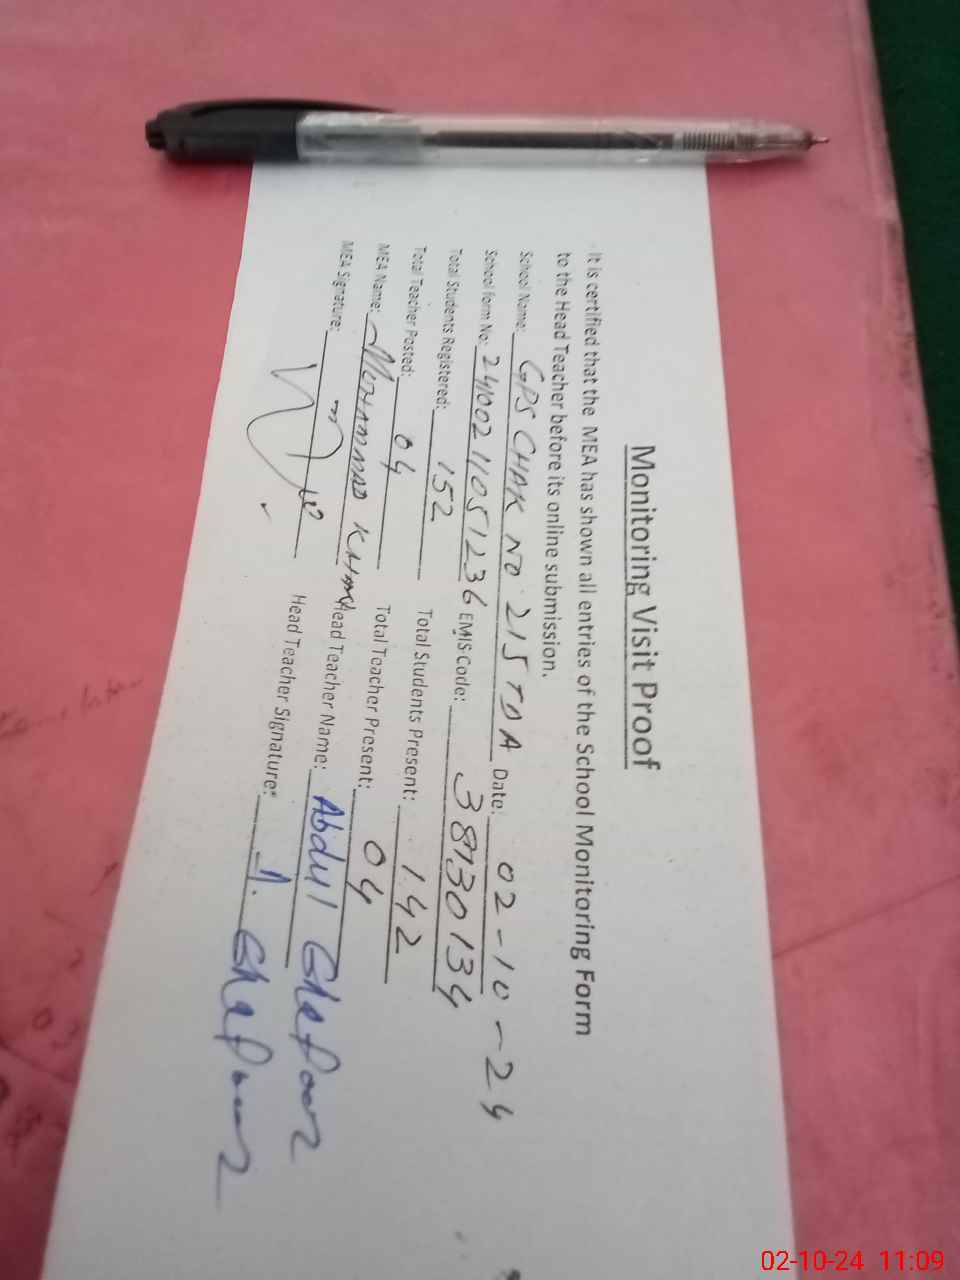 Monitoring Visit Proof
It is certified that the MEA has shown all entries of the School Monitoring Form
to the Head Teacher before its online submission.
School Name: GPS CHAK NO. 215 TDA Date: 02-10-24
School Form No: 241002 11051236 EMIS Code: 38130134
Total Students Registered: 152 Total Students Present: 142
Total Teacher Posted: 04 Total Teacher Present: 04
MEA Name: MUHAMMAD KHAN Head Teacher Name: Abdul Ghafoor
MEA Signature: Head Teacher Signature: A. Ghafoor
02-10-24 11:09